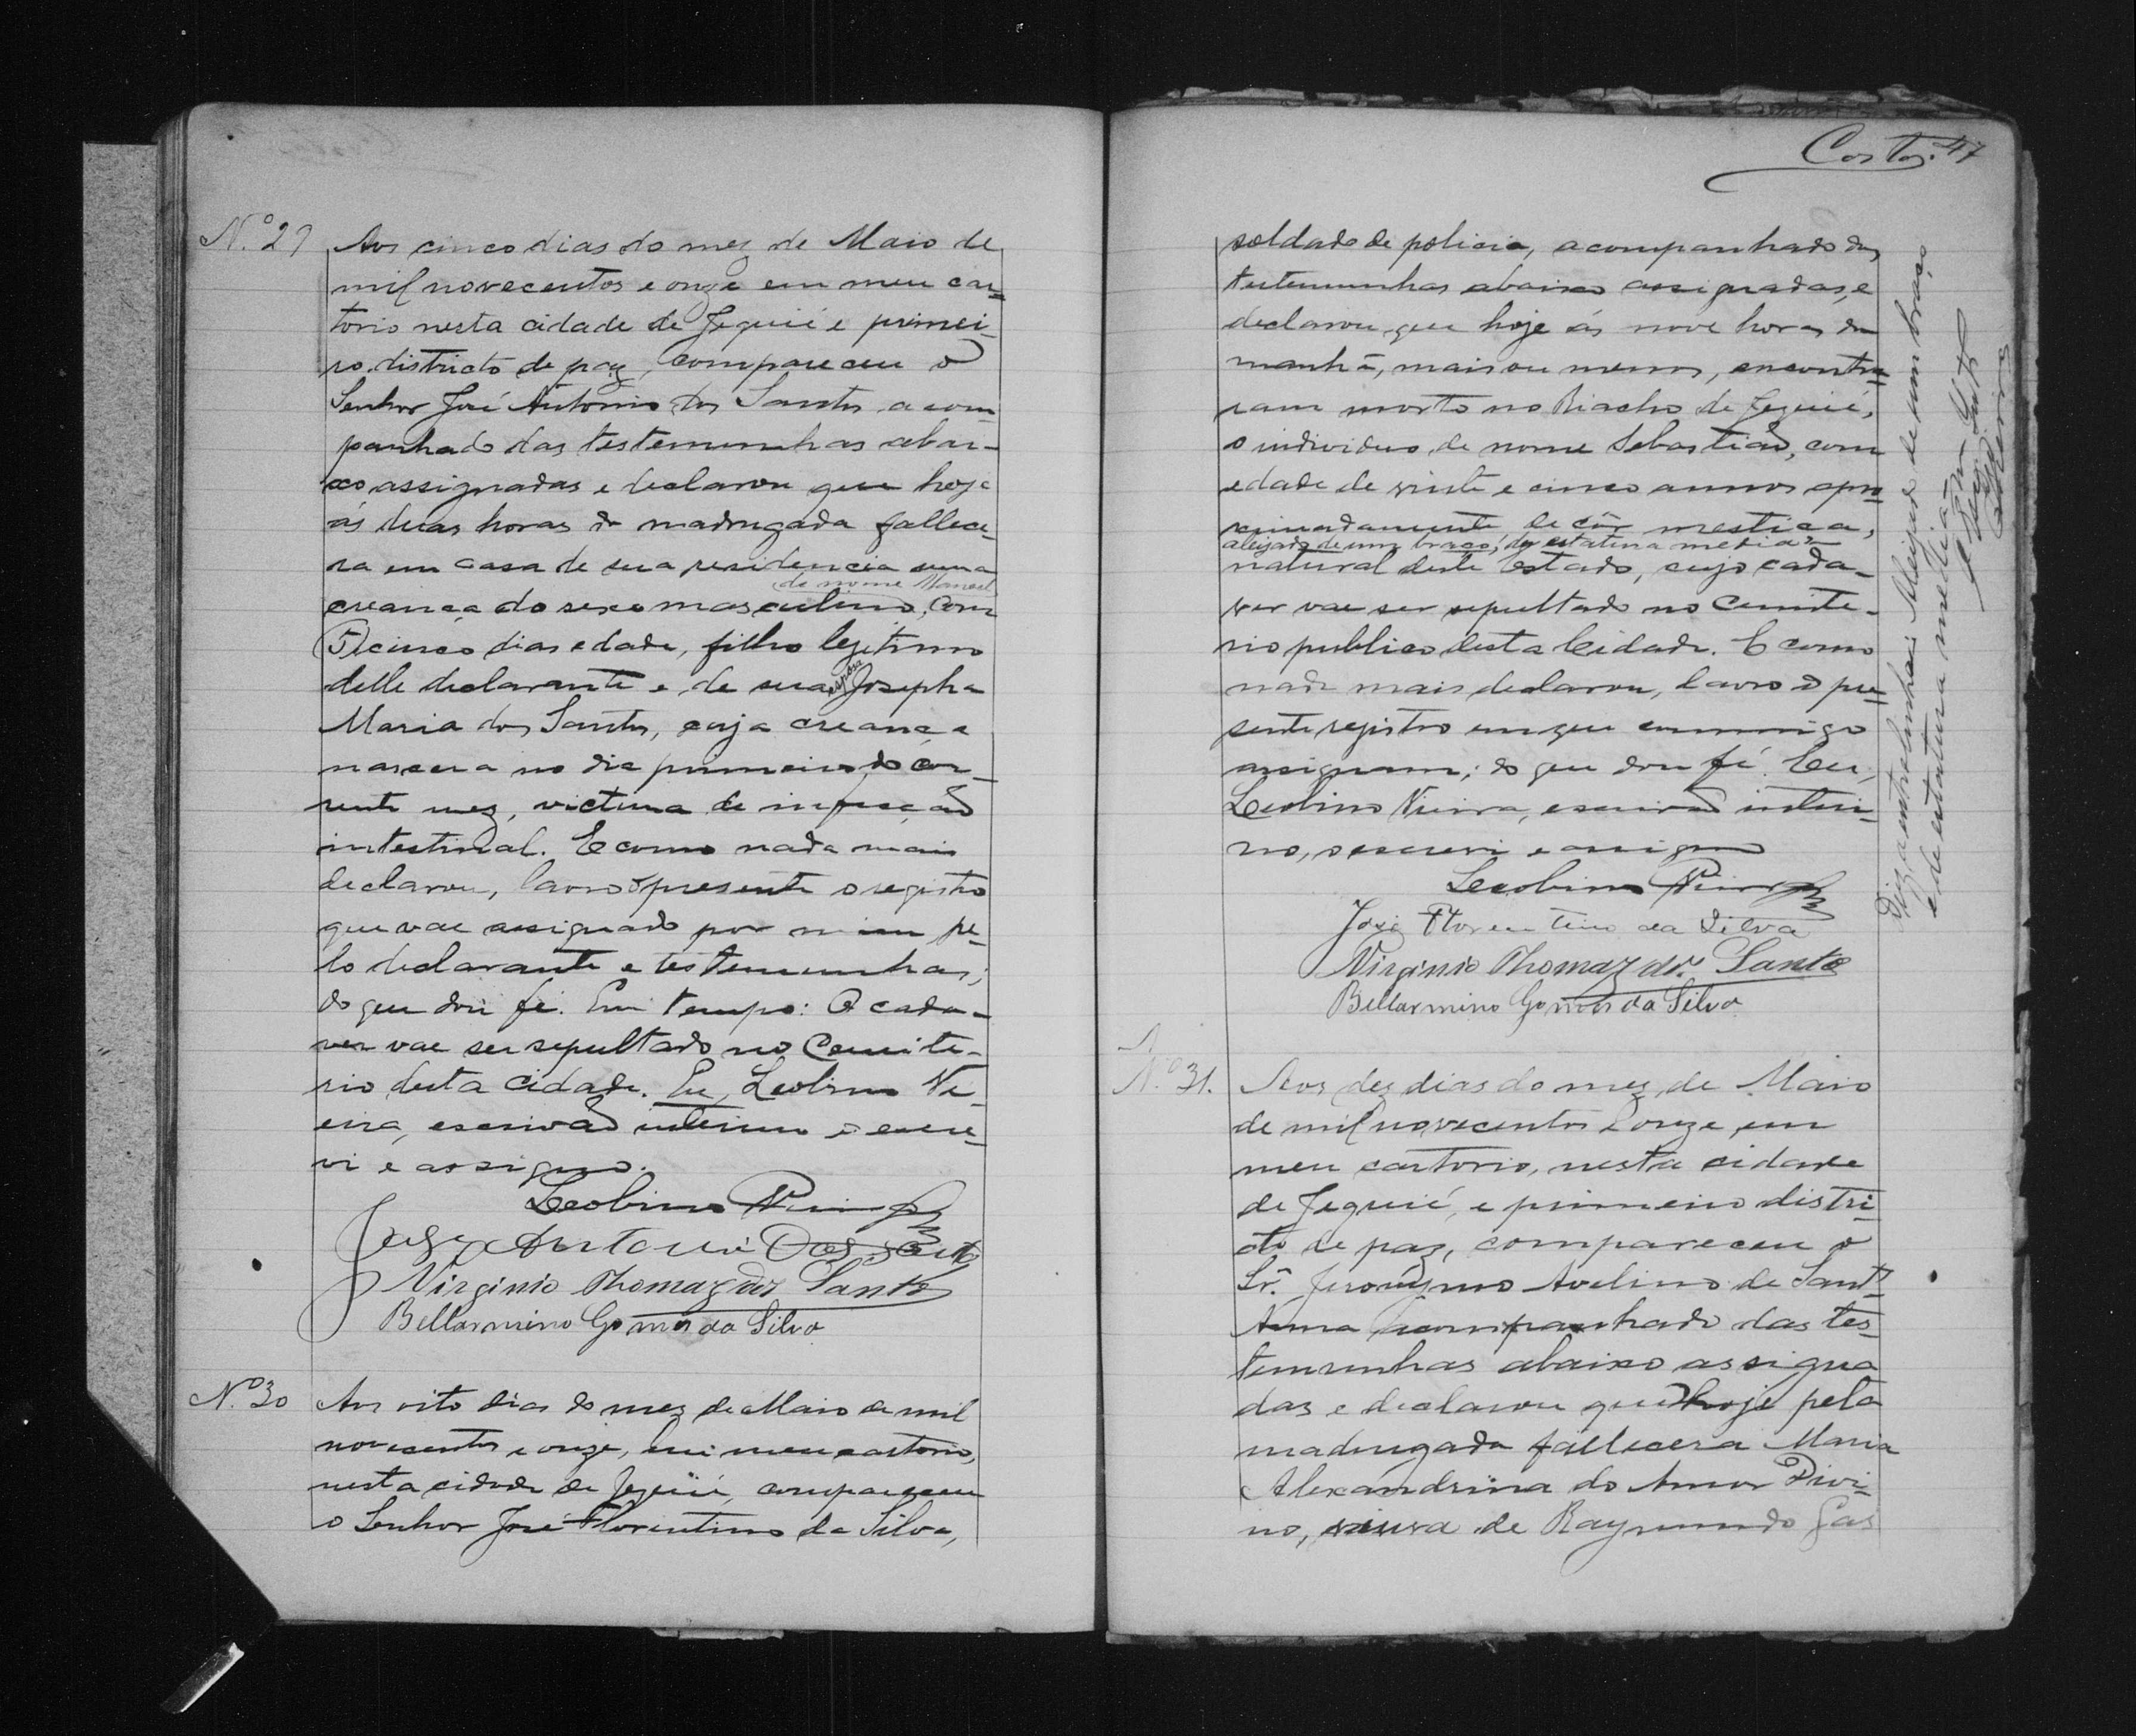 Nº 29
Aos cinco dias do mez de Maio de
mil novecentos e onze em meu car-
torio nesta cidade de Jequié e primei-
ro districto de paz, compareceu o
Senhor José Antonio dos Santos acom-
panhado das testemunhas abai-
xo assignadas e declarou que hoje
ás duas horas da madrugada fallece-
ra em casa de sua residencia uma
de nome Manoel
creança do sexo masculino, com
(5) cinco dias edade, filho legitimo
delle declarante e de sua esposa Josepha
Maria dos Santos, cuja creança
nascera no dia primeiro do cor-
rente mez, victima de infecção
intestinal. E como nada mais
declarou, lavro o presente o registro
que vae assignado por mim pe-
lo declarante e testemunhas;
do que dou fé. Em tempo: O cada-
ver vae ser sepultado no Cemite-
rio desta cidade. Eu, Leobino Vi-
eira, escrivão interino o escre-
vi e assigno.
Leobino Vieira
José Antonio dos Santo
Virginio Thomaz dos Santos
Bellarmino Gomes da Silva
Nº 30
Aos oito dias do mez de Maio de mil
novecentos e onze, em meu cartorio,
nesta cidade de Jequié, compareceu
o Senhor José Florentino da Silva,
Costa. 47
soldado de policia, acompanhado das
testemunhas abaixo assignadas, e
declarou que hoje ás nove horas da
manhã, mais ou menos, encontra-
ram morto no Riacho de Jequié,
o individuo de nome Sebastião, com
edade de vinte e cinco annos apro-
ximadamente de côr mestiça,
aleijado de um braço, de estatura media
natural deste Estado, cujo cada-
ver vae ser sepultado no Cemite-
rio publico desta Cidade. E como
nada mais declarou, lavro o pre-
sente registro em que commigo
assignam; do que dou fé. Eu,
Leobino Vieira, escrivão interi-
no, o escrevi e assigno
Leobino Vieira
José Florentino da Silva
Virginio Thomaz dos Santos
Bellarmino Gomes da Silva
Diz a entrelinha: Aleijado de um braço
e de estatura mediã
Nº 31.
Aos dez dias do mez de Maio
de mil novecentos e onze, em
meu cartorio, nesta cidade
de Jequié, e primeiro distri-
cto de paz, compareceu o
Sr. Jeronymo Avelino de Sant'-
Anna acompanhado das tes-
temunhas abaixo assigna
das e declarou que hoje pela
madrugada fallecera Maria
Alexandrina do Amor Divi-
no, viuva de Raymundo Gas